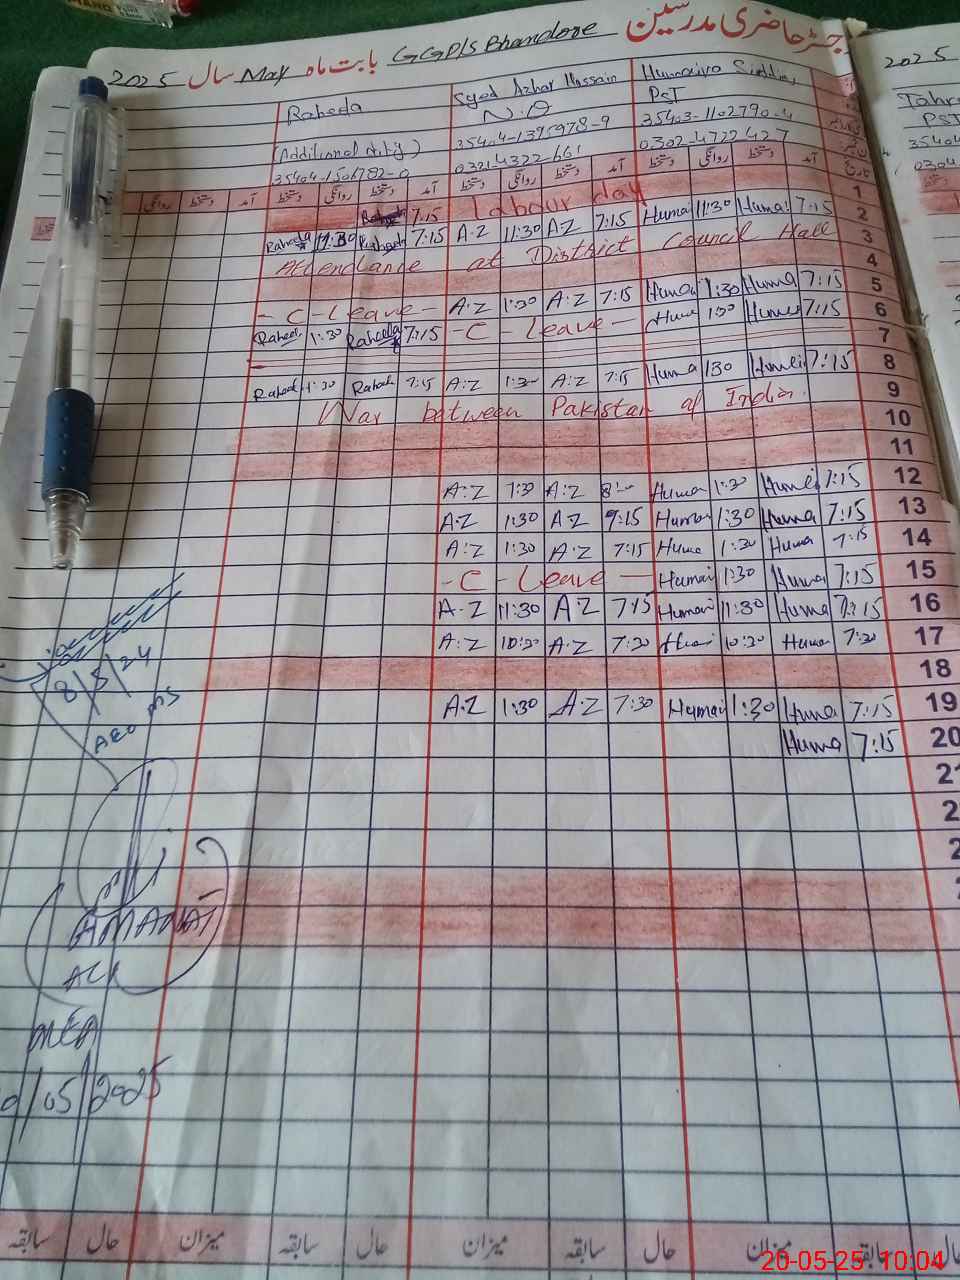 رجسٹر حاضری مدرسین GGP/S Bhandore بابت ماہ May سال 2025
2025
Raheda Syed Azhar Hassain Humaira Siddiq
(Additional duty) N.Q PST
35404-1395978-9 35403-1102790-4
0321-4322-661 0302-4722427
Tahr
PST
35404
0304
آمد دستخط روانگی دستخط آمد دستخط روانگی دستخط آمد دستخط روانگی دستخط آمد تاریخ
Labour day 1
7:15 2
Raheda 11:30 7:15 A.Z 11:30 A.Z 7:15 Humai 11:30 Humai 7:15
Attendance at District Council Hall 3
4
- C - Leave - A.Z 1:30 A.Z 7:15 Humai 1:30 Huma 7:15 5
Raheda 1:30 Raheela 7:15 - C - Leave - Huma 1:30 Huma 7:15 6
7
Raheda 1:30 Raheda 7:15 A.Z 1:30 A.Z 7:15 Huma 130 Humai 7:15 8
War between Pakistan of India. 9
10
11
A.Z 1:30 A.Z Huma 1:30 Humai 7:15 12
A.Z 1:30 A.Z 9:15 Human 1:30 Huma 7:15 13
A.Z 1:30 A.Z 7:15 Huma 1:30 Huma 7:15 14
- C - Leave — Humai 1:30 Huma 7:15 15
A.Z 11:30 A.Z 7:15 Humai 11:30 Huma 7:15 16
A.Z 10:30 A.Z 7:30 10:30 Huma 7:30 17
18
A.Z 1:30 A.Z 7:30 Humai 1:30 Huma 7:15 19
Huma 7:15 20
21
8/5/24
AEO MS
AMANAT
ALI
MEA
/05/2025
سابقہ حال میزان سابقہ حال میزان سابقہ حال میزان سابقہ
20-05-25 10:04